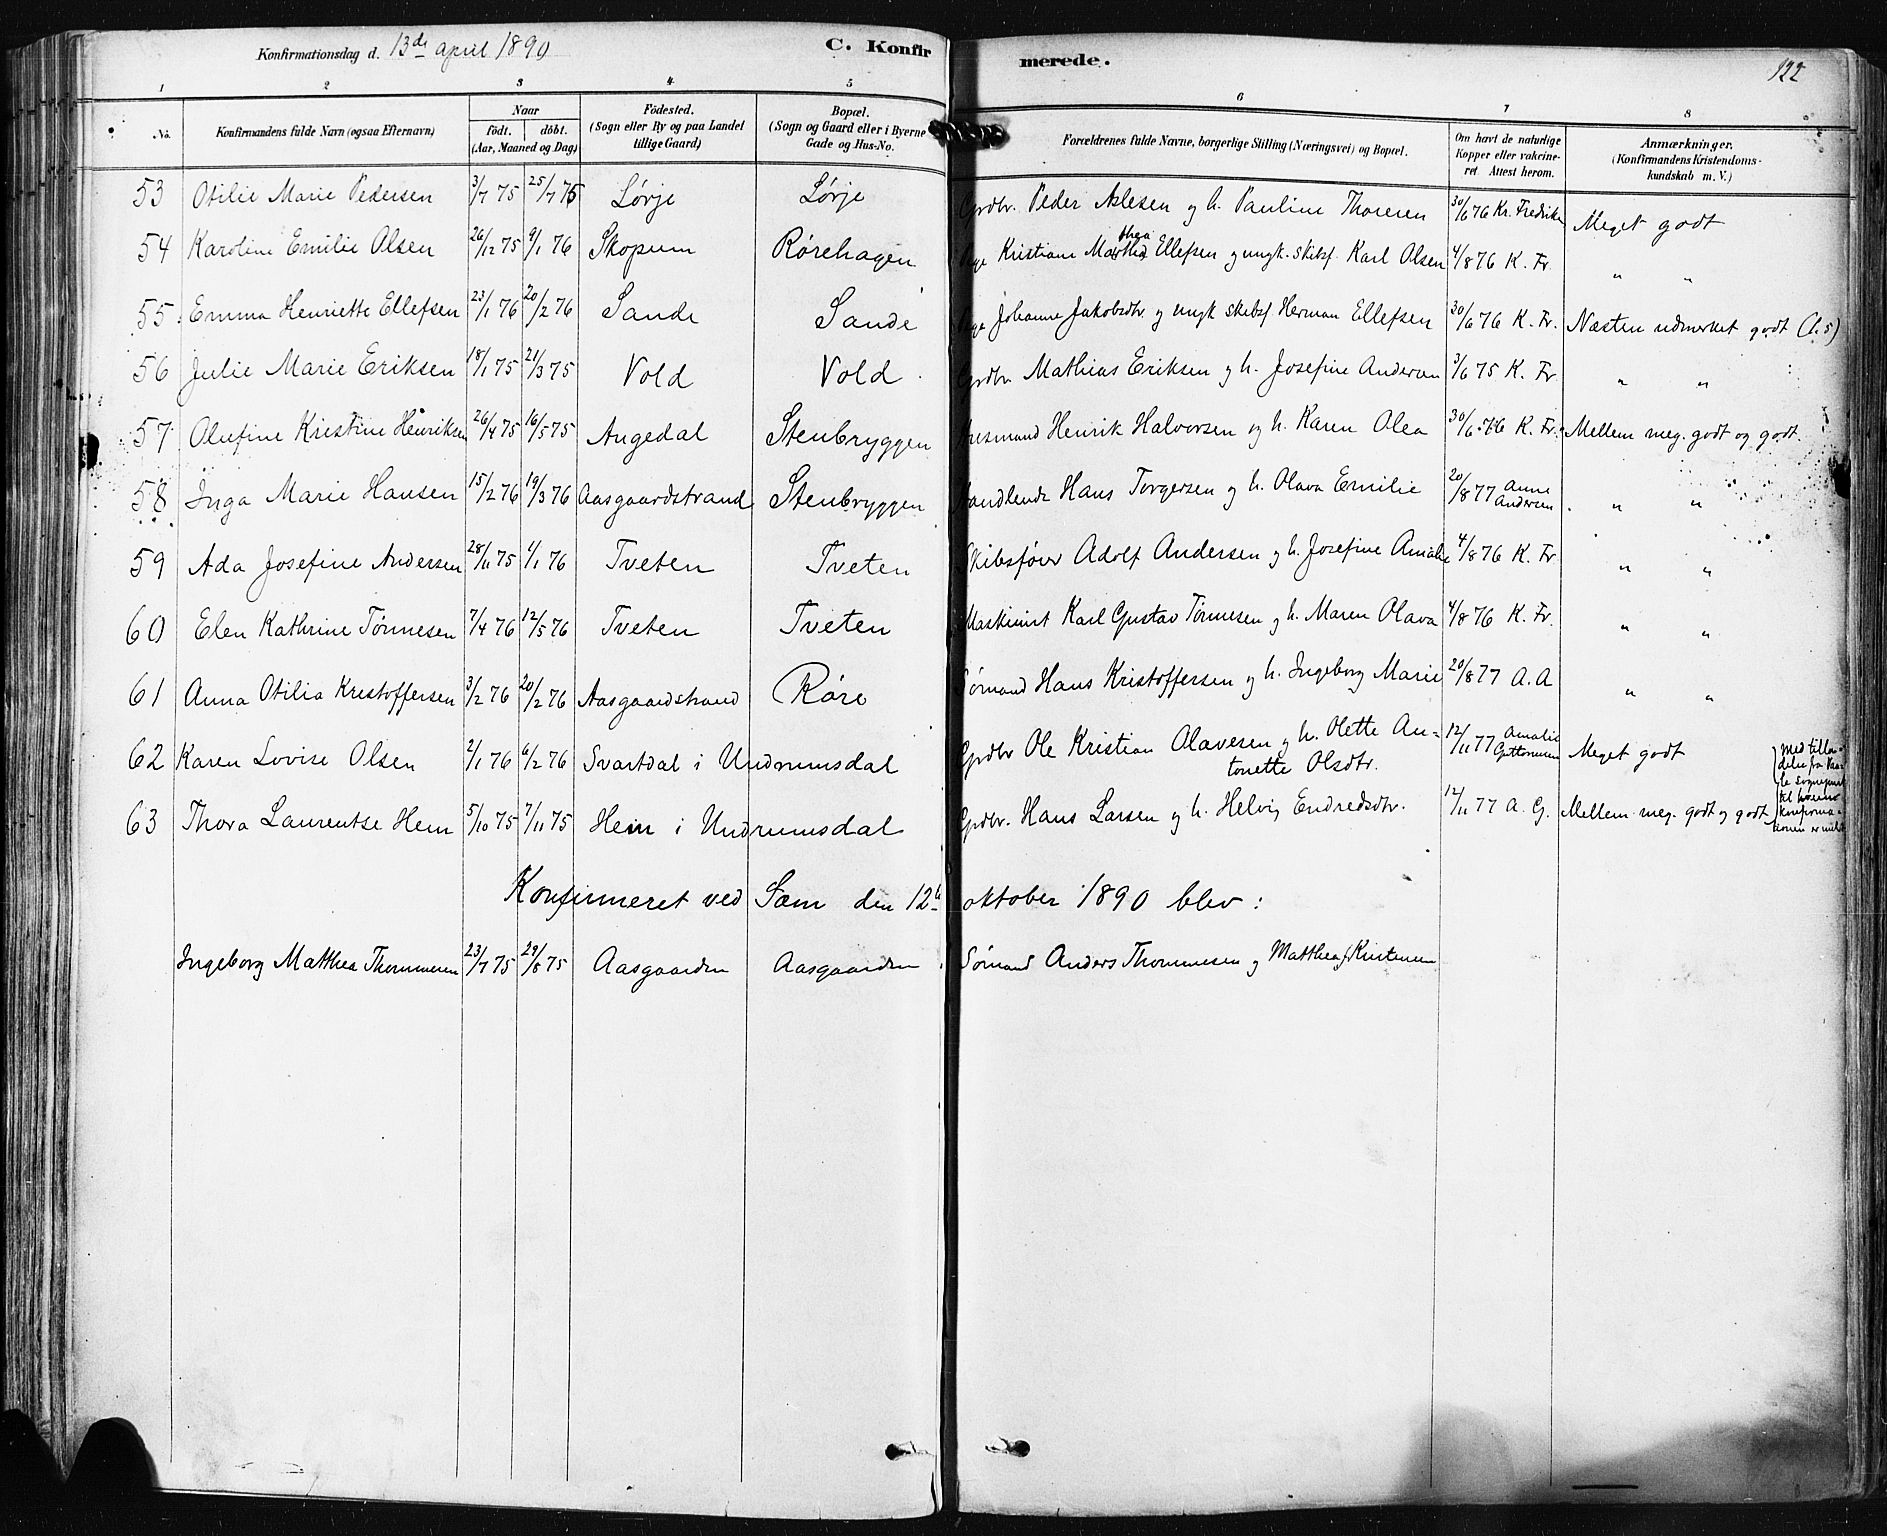 Konfirmationsdag d. 13de april 1890 C. Konfirmerede. 122
1 2 3 4 5 6 7 8
No. Konfirmandens fulde Navn (ogsaa Efternavn) Naar födt. döbt. (Aar, Maaned og Dag) Födested. (Sogn eller By og paa Landet tillige Gaard) Bopæl. (Sogn og Gaard eller i Byerne Gade og Hus-No. Forældrenes fulde Navne, borgerlige Stilling (Næringsvei) og Bopæl. Om havt de naturlige Kopper eller vakcineret. Attest herom. Anmærkninger. (Konfirmandens Kristendomskundskab m. V.)
53 Otilie Marie Pedersen 3/7 75 25/7 75 Lørje Lørje Grdbr. Peder Aslesen og h. Pauline Thoresen 30/6 76 Kr. Fredriksen Meget godt
54 Karoline Emilie Olsen 26/12 75 9/1 76 Skopum Rørehagen Kristiane Mathea Ellefsen og ungk. skibsf. Karl Olsen 4/8 76 K. Fr. " "
55 Emma Henriette Ellefsen 23/1 76 20/2 76 Sande Sande Johanne Jakobsdtr. og ungk skibsf Herman Ellefsen 30/6 76 K. Fr. Næsten udmerket godt (1.5)
56 Julie Marie Eriksen 18/1 75 21/3 75 Vold Vold Grdbr. Mathias Eriksen og h. Josefine Andersen 3/6 75 K. Fr. " "
57 Olufine Kristine Henriksen 26/4 75 16/5 75 Augedal Stenbryggen Husmand Henrik Halvorsen og h. Karen Olea 30/6 76 K. Fr. Mellem meg. godt og godt.
58 Inga Marie Hansen 15/2 76 19/3 76 Aasgaardstrand Stenbryggen Handlende Hans Torgersen og h. Olava Emilie 20/8 77 Anne Andersen " "
59 Ada Josefine Andersen 28/11 75 1/1 76 Tveten Tveten Skibsfører Adolf Andersen og h. Josefine Amalie 4/8 76 K. Fr. " "
60 Elen Kathrine Tønnesen 7/4 76 12/5 76 Tveten Tveten Maskinist Karl Gustav Tønnesen og h. Maren Olava 4/8 76 K. Fr. " "
61 Anna Otilia Kristoffersen 3/2 76 20/2 76 Aasgaardstrand Røre Sømand Hans Kristoffersen og h. Ingeborg Marie 20/8 77 A. A " "
62 Karen Lovise Olsen 2/1 76 6/2 76 Svartdal i Undrumsdal Grdbr Ole Kristian Olavesen og h. Olette Antonette Olsdtr. 12/11 77 Amalie Guttormsen Meget godt
63 Thora Laurentse Hem 5/10 75 7/11 75 Hem i Undrumsdal Grdbr. Hans Larsen og h. Helvig Endredsdtr. 12/11 77 A. G. Mellem meg. godt og godt
Konfirmeret ved Sæm den 12te oktober 1890 blev:
Ingeborg Matthea Thommesen 23/7 75 29/8 75 Aasgaarden Aasgaarden Sømand Anders Thommesen og Matthea f. Kristensen